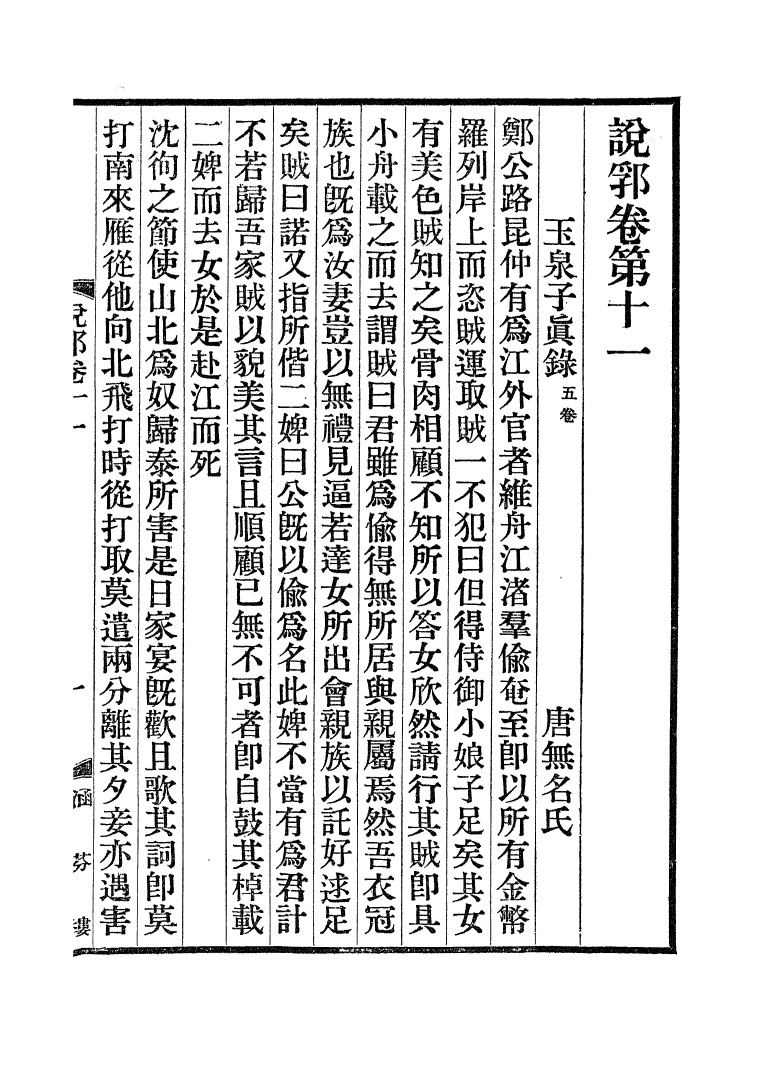 說郛卷第十一
玉泉子眞錄五卷　唐無名氏
鄭公路昆仲有爲江外官者維舟江渚羣偸奄至卽以所有金幣
羅列岸上而恣賊運取賊一不犯曰但得侍御小娘子足矣其女
有美色賊知之矣骨肉相顧不知所以答女欣然請行其賊卽具
小舟載之而去謂賊曰君雖爲偸得無所居與親屬焉然吾衣冠
族也旣爲汝妻豈以無禮見逼若達女所出會親族以託好逑足
矣賊曰諾又指所偕二婢曰公旣以偸爲名此婢不當有爲君計
不若歸吾家賊以貌美其言且順顧已無不可者卽自鼓其棹載
二婢而去女於是赴江而死
沈徇之節使山北爲奴歸泰所害是日家宴旣歡且歌其詞卽莫
打南來雁從他向北飛打時從打取莫遣兩分離其夕妾亦遇害
說郛卷十一
一
涵芬樓